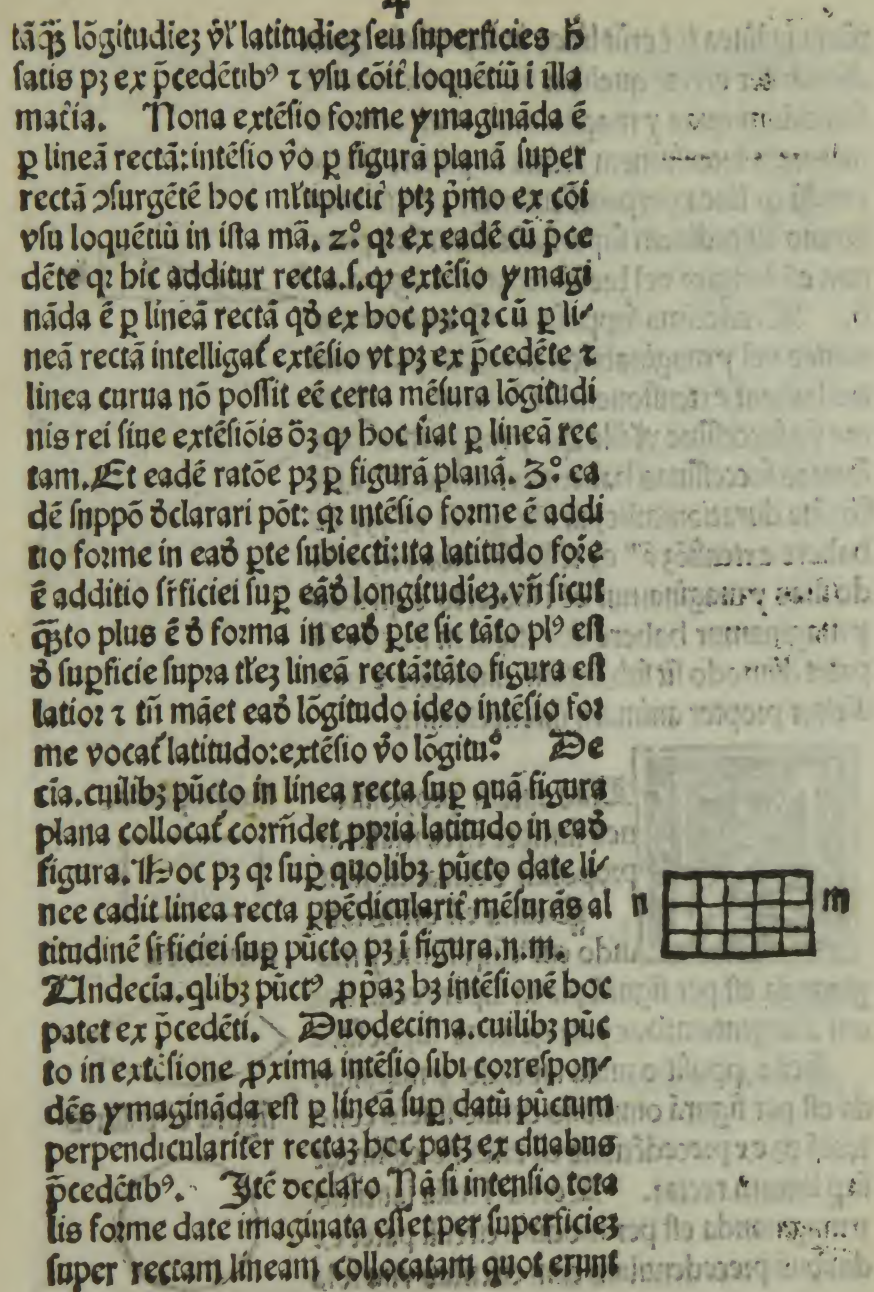 tāqȝ lōgitudieȝ vl' latitudieȝ ſeu ſuperficies h̄
ſatis pȝ ex p̄cedētibꝰ ⁊ vſu cōit̄ loquētiū ī illa
mat̄ia. Nona extēſio forme ymagināda ē
ꝑ lineā rectā:intēſio v̄o ꝑ figurā planā ſuper
rectā ꝯſurgētē hoc ml'tiplicit̄ ptȝ p̄mo ex cōi
vſu loquētiū in iſta mā. 2º qꝛ ex eadē cū p̄ce
dēte qꝛ hic additur recta.ſ.ꝙ extēſio ymagi
nāda ē ꝑ lineā rectā qđ ex hoc pȝ:qꝛ cū ꝑ li⸗
neā rectā intelligat̄ extēſio vt pȝ ex p̄cedēte ⁊
linea curua nō poſſit eē certa mēſura lōgitudi
nis rei ſine extēſiōis oȝ ꝙ hoc fiat ꝑ lineā rec
tam.Et eadē ratōe pȝ ꝑ figurā planā. 3º ea
dē ſuppō đclarari pōt: qꝛ intēſio forme ē addi
tio forme in eađ ꝑte ſubiecti:ita latitudo for̄e
ē additio ſr̄ficiei ſuꝑ eāđ longitudieȝ.vn̄ ſicut
q̄ȝto plus ē đ forma in eađ ꝑte ſic tāto plꝰ eſt
đ ſuꝑficie ſupra tl'eȝ lineā rectā:tāto figura eſt
latior ⁊ tn̄ māet eađ lōgitudo ideo intēſio for
me vocat̄ latitudo:extēſio v̄o lōgituº De
cīa.cuilibȝ pūcto in linea recta ſuꝑ quā figura
plana collocat̄ corrn̄det ꝓpria latitudo in eađ
figura.Hoc pȝ qꝛ ſuꝑ quolibȝ pūcto date li⸗
nee cadit linea recta ꝑpēdicularit̄ mēſurās al
titudinē ſr̄ficiei ſuꝑ pūcto pȝ ī figura.n.m.
n m
Undecīa.qlibȝ pūctꝰ ꝓpaȝ hȝ intēſionē hoc
patet ex p̄cedēti. Duodecima.cuilibȝ pūc
to in extēſione ꝓxima intēſio ſibi correſpon⸗
dēs ymagināda eſt ꝑ lineā ſuꝑ datū pūctum
perpendiculariter rectaȝ hoc patȝ ex duabus
p̄cedētibꝰ. Itē declaro Nā ſi intenſio tota
lis forme date imaginata eſſet per ſuperficieȝ
ſuper rectam lineam collocatam quot erunt